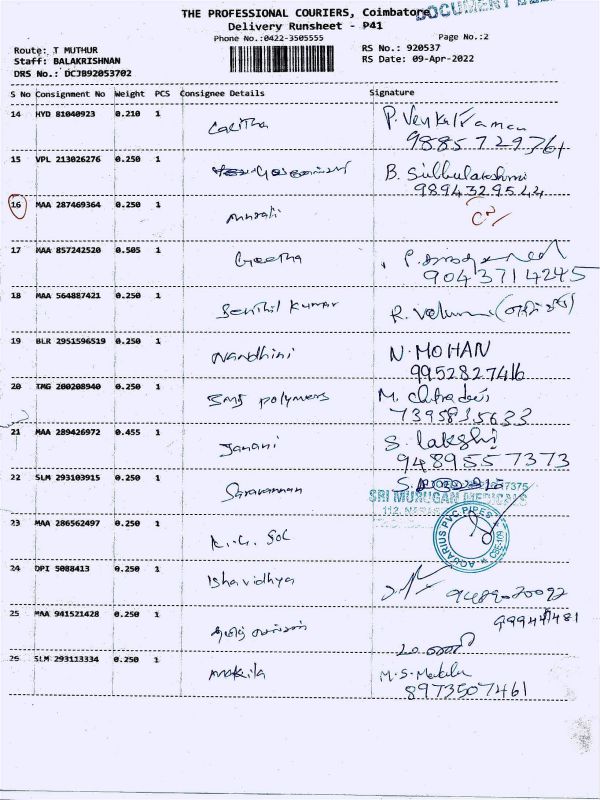 THE PROFESSIONAL COURIERS, Coimbatore
Delivery Runsheet - P41
Phone No.:0422-3505555
Page No.:2
Route: T MUTHUR
RS No.: 920537
Staff: BALAKRISHNAN
RS Date: 09-Apr-2022
DRS No.: DCJB92053702
S No Consignment No Weight PCS Consignee Details Signature
14 HYD 81040923 0.210 1 Lalitha P. Venkatraman
9885729361
15 VPL 213026276 0.250 1 B. Subbulakshmi
9894329544
16 MAA 287469364 0.250 1 Murali
17 MAA 857242520 0.505 1 Geetha
9043714245
18 MAA 564887421 0.250 1 Senthil Kumar R.
19 BLR 2951596519 0.250 1 Nandhini N. MOHAN
9952827416
20 TMG 200208940 0.250 1 SMJ polymers M. Chitradevi
7395835633
21 MAA 289426972 0.455 1 Janani S. lakshi
9489557373
22 SLM 293103915 0.250 1 Saravanan S.
SRI MURUGAN MEDICALS
23 MAA 286562497 0.250 1 K.G. Sol
AQUARIUS PVC PIPES
24 DPI 5088413 0.250 1 Ishavidhya 9489020092
25 MAA 941521428 0.250 1
26 SLM 293113334 0.250 1 Mokila M.S.
8973507461